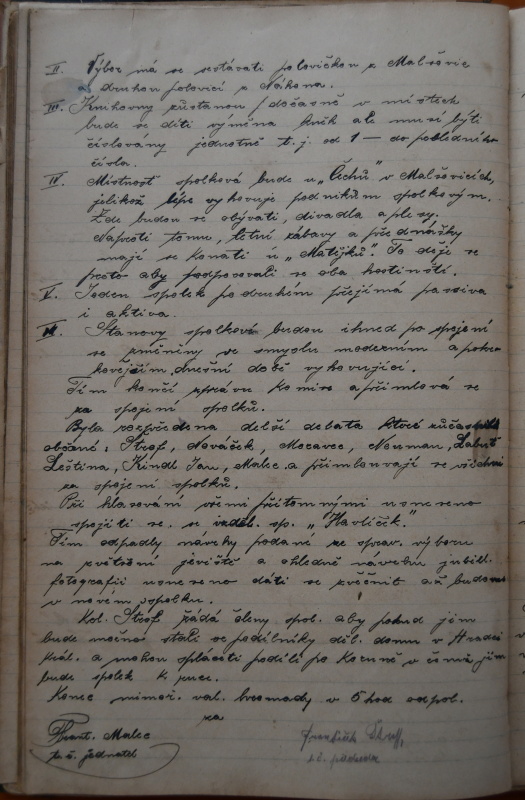 II. Výbor má se sestávati polovičkou z Malšovic
a druhou polovicí z Náhona.
III. Knihovny zůstanou dočasně v místech
bude se díti výměna knih ale musí býti
číslovány jednotně t. j. od 1 — do posledního
čísla.
IV. Místnost spolková bude u „Čechů" v Malšovicích,
jelikož lépe vyhovuje podnikům spolkovým.
Zde budou se obývati, divadla a plesy.
Naproti tomu, letní zábavy a přednášky
mají se konati u „Matějků". To děje se
proto aby podporovali se oba hostinští.
V. Jeden spolek po druhém přejímá passiva
i aktiva.
VI. Stanovy spolkové budou ihned po spojení
se změněny ve smyslu moderním a pokro
kovějším, dnešní době vyhovující.
Tím končí zprávu komise a přimlouvá se
za spojení spolků.
Byla rozpředena delší debata které zúčastnili
občané: Štrof, Nováček, Moravec, Neuman,
Leština, Kindl Jan, Malec a přimlouvají se všichni
za spojení spolků.
Při hlasování všemi přítomnými usneseno
spojiti se. se vzděl. sp. „Havlíček".
Tím odpadly návrhy podané ze správ. výboru
na zvětšení jeviště a ohledně návrhu jubil.
fotografií usneseno dáti se zvěčnit až budeme
v novém spolku.
Kol. Štrof žádá členy spol. aby pokud jim
bude možno stali se podílníky děl. domu v Hradci
Král. a mohou spláceti podíl po Koruně v čemž jim
bude spolek k ruce.
Konec mimoř. val. hromady v 5 hod odpol.
za
Frant. Malec
t. č. jednatel
František Štroff,
t. č. předseda